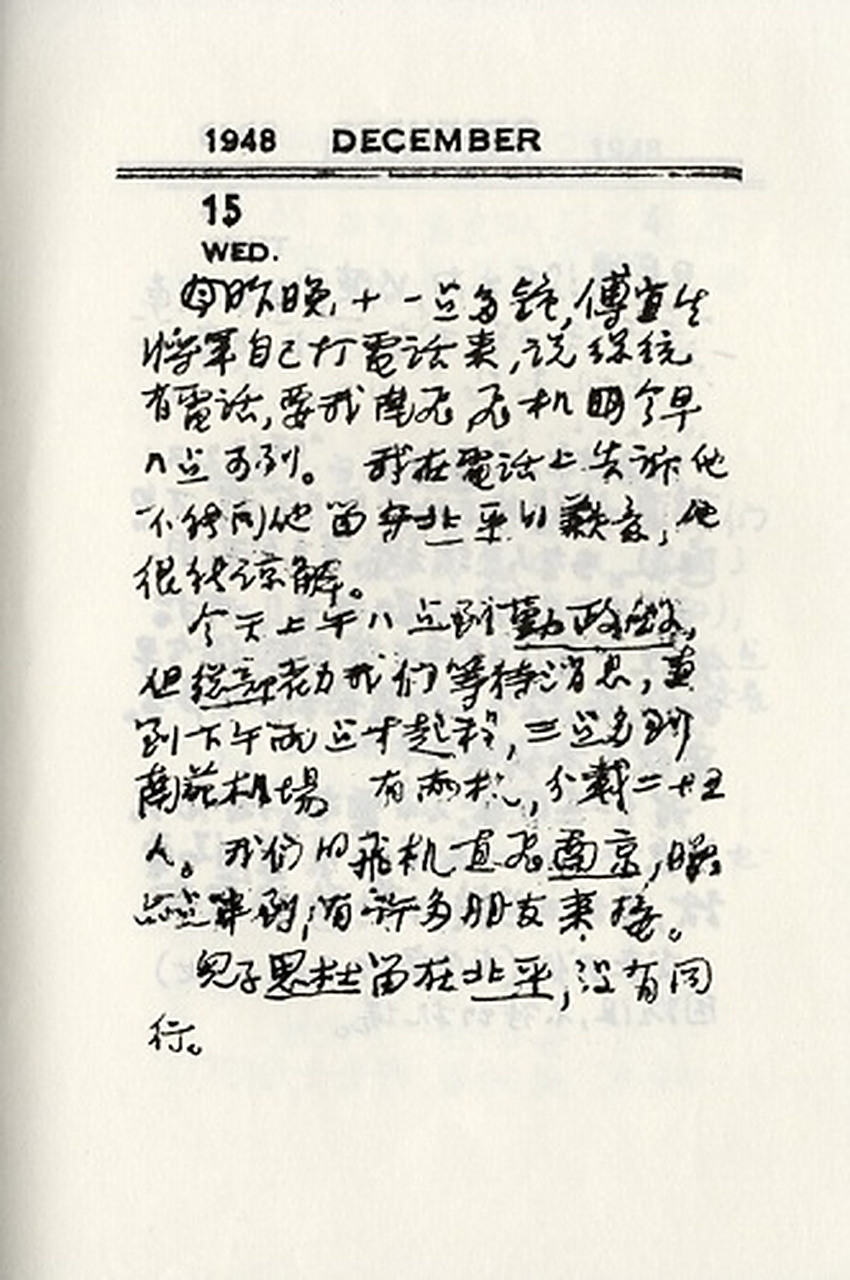 1948 DECEMBER
15
WED.
昨晚十一点多鐘,傅宜生
將軍自己打電話来,说總統
有電話,要我南飞,飞机今早
八点可到。我在電話上告诉他
不能同他留守北平的歉意,他
很能谅解。
今天上午八点到勤政殿,
但總部劝我们等待消息,直
到下午两点才起程,三点多到
南苑机場 有两机,分載二十五
人。我们的飛机直飞南京,晚
六点半到,有许多朋友来接。
兒子思杜留在北平,没有同
行。